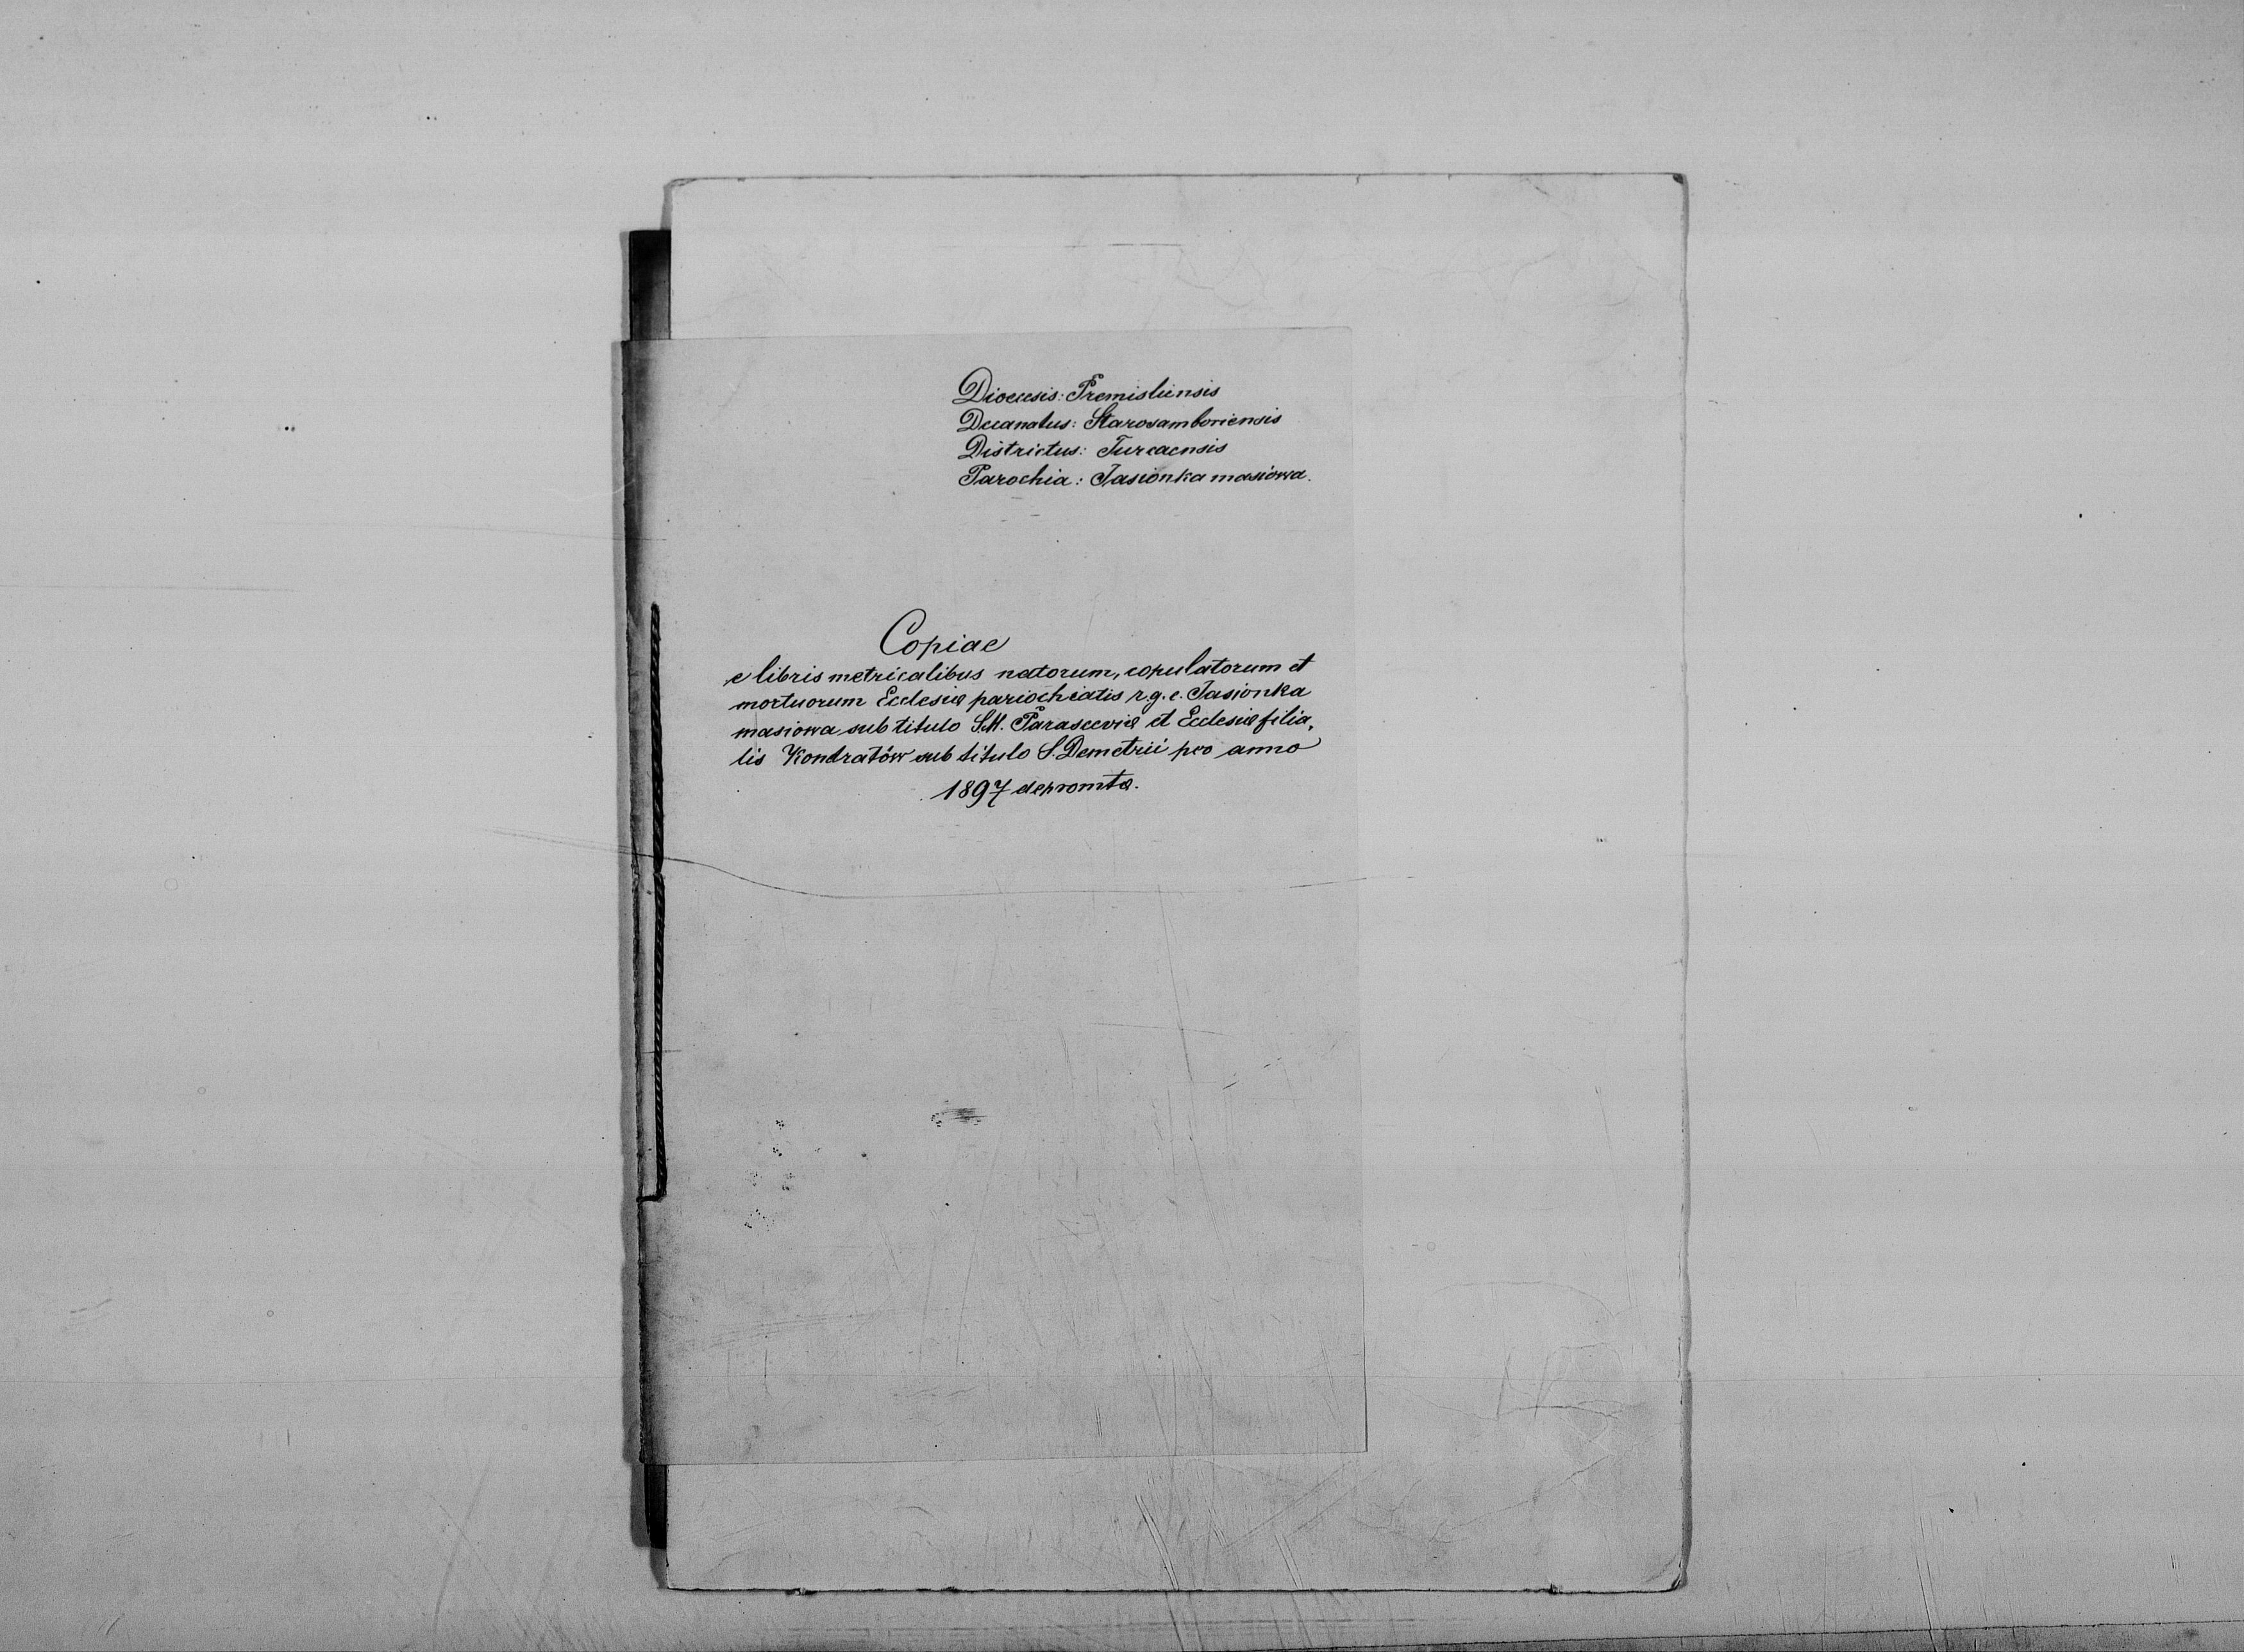 Dioecesis: Premisliensis
Decanatus: Starosamboriensis
Districtus: Turcaensis
Parochia: Jasionka masiowa.
Copiae
e libris metricalibus natorum, copulatorum et
mortuorum Ecclesiæ pariochiatis r.g.c. Jasionka
masiowa sub titulo S.M. Parascevíæ et Ecclesiæ filia,
lis Kondratów sub titulo S. Demetrii pro anno
1897 depromtæ.